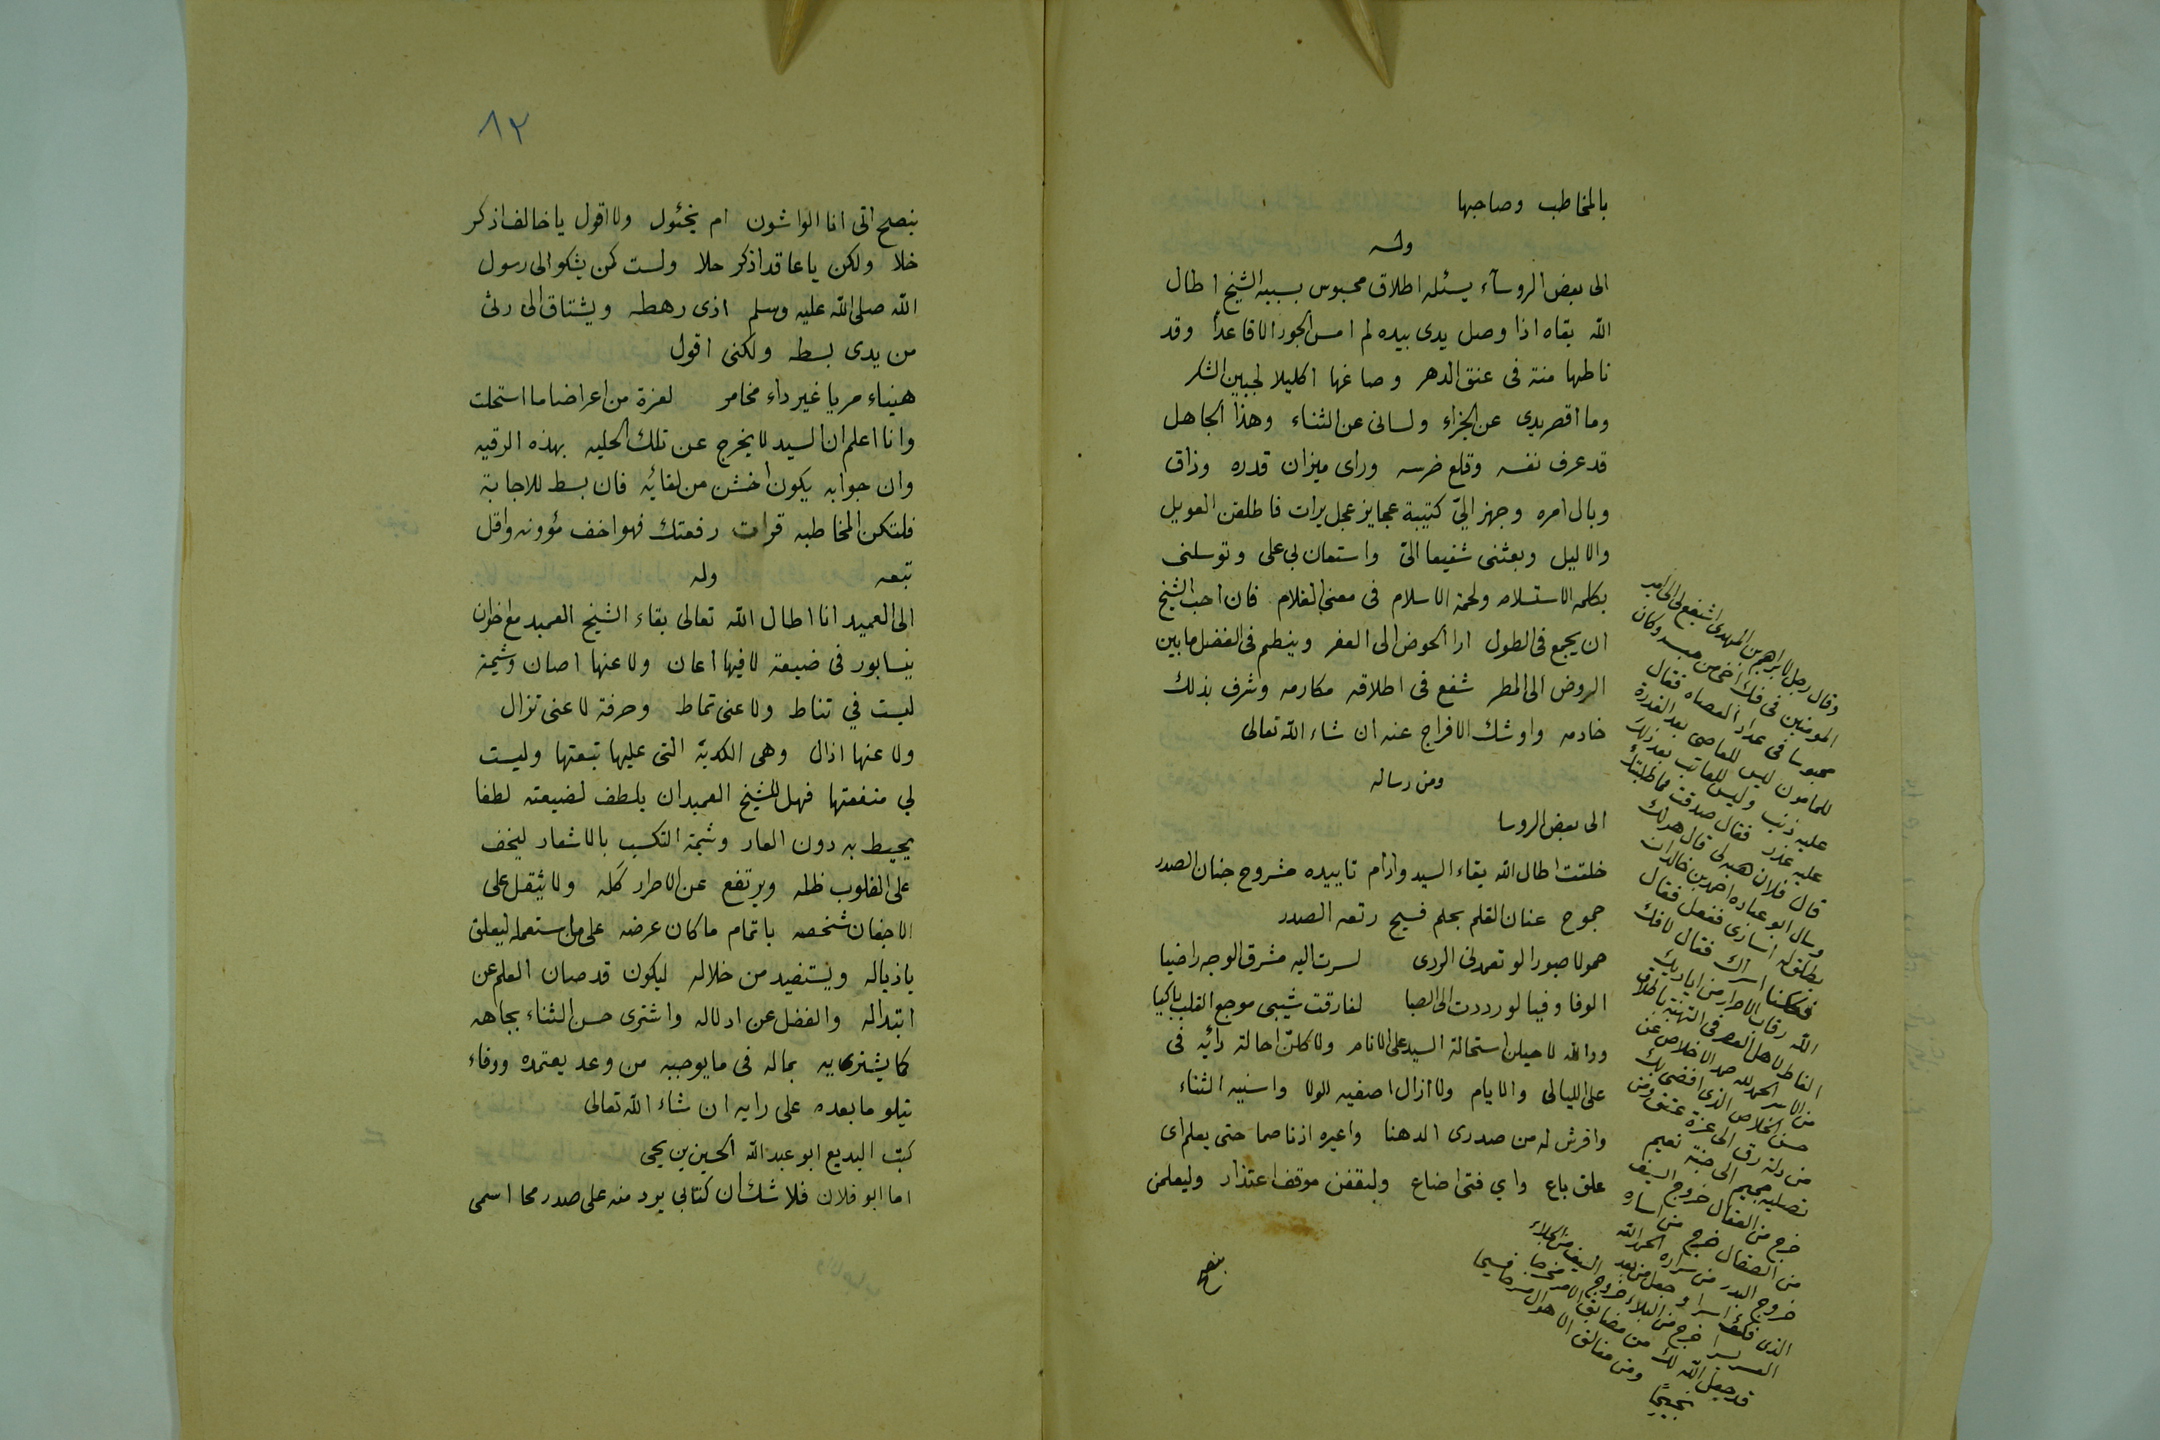 بالمخاطب وصاحبها
وله
الى بعض الروساء يسئله اطلاق محبوس بسببه الشيخ اطال
الله بقاه اذا وصل يدى بيده لم امس الجوزا الا قاعدا وقد
ناطها منة فى عنق الدهر وصاغها اكليلا لجبين الشكر
وما اقصر يدى عن الجزاء ولسانى عن الثناء وهذا الجاهل
قد عرف نفسه وقلع ضرسه وراى ميزان قدره وذاق
وبال امره وجهز الىّ كتيبة عجايز عجل يرات فاطلقن العويل
والاليل وبعثنى شفيعا الىّ واستعان بى على وتوسلنى
بكلمه الاستسلام ولحمة الاسلام فى معنى الغلام فان احب الشيخ
ان يجمع فى الطول ازا الحوض الى العقر وينظم فى الفضل ما بين
الروض الى المطر شفع فى اطلاقه مكارمه وشرف بذلك
خادمه واوشك الافراج عنه ان شاء الله تعالى
ومن رساله
الى بعض الروسا
خلقت اطال الله بقاء السيد وادام تاييده مشروح جنان الصدر
جموح عنان القلم بحلم فسيح رقعه الصدر
حمولا صبورا لو تعمدنى الردى لسرت اليه مشرق الوجه راضيا
الوفا وفيا لو رددت الى الصبا لفارقت شيبى موجع القلب باكيا
ووالله لاحيلن استحالة السيد على الانام ولا كلنّ احالة رائه فى
على الليالى والايام ولا ازال اصفيه الولا واسنيه الثناء
وافرش له من صدرى الدهنا واعيره اذنا صما حتى يعلم اى
علق باع واي فتى اضاع وليقفن موقف اعتذار وليعلمن
بنصح
وقال رجل لابراهيم بن المهدى اشفع لى الى امير
المومنين فى فك اخى من حبسه وكان
محبوسا فى عداد العصاه فقال
للمامون ليس للعاصى بعد القدرة
عليه ذنب وليس للعاتب بعد ذلك
عليه عذر فقال صدقت فما طلبتك
قال فلان هبه لى قال هو لك
وسال ابو عباده احمد بن خالد ان
يطلق له اسارى ففعل فقال
فككنا اسراك فقال لا فك
الله رقاب الاحرار من اياديك
الفاظ لاهل العصر فى التهنية باطلاق
من الاسر الحمد لله حمد الاخلاص عن
حسن الخلاص الذى افضى بك
من ذلة رق الى عزة عتق ومن
تصلية جحيم الى جنة نعيم
خرج من العقال خروج السيف
من الصقال خرج من اساره
خروج البدر من سراره الحمد الله
الذى فك اسرا وجعل من بعد
العسر يسرا خرج من البلاء خروج السيف من الجلاء
قد جعل الله لك من مضايق الامور مخرجا
نجيحا ومن مغالق الاهوال مسرحا فسيحا
٨٢
بنصح اتى انا الواشون ام بخئول ولا اقول يا خالف اذكر
خلا ولكن يا عاقد اذكر حلا ولست كمن يشكو الى رسول
الله صلى الله عليه وسلم اذى رهطه ويشتاق الى
من يدى بسطه ولكنى اقول
هنيئاء مريا غير داء مخامر لعزة من اعراضنا ما استحلت
وانا اعلم ان السيد لا يخرج عن تلك الحليه بهذه الرقيه
وان جوابه يكون اخشن من لقائه فان بسط للاجابة
فلتكن المخاطبه قرات رقعتك فهو اخف مؤونه واقل
تبعه وله
الى العميد انا اطال الله تعالى بقاء الشيخ العميد مع اخوان
نيسابور فى ضيعة لا فيها اعان ولا عنها اصان وشيمة
ليست في تناط ولا عنى تماط وحرفة لا عنى تزال
ولا عنها ازال وهى الكدية التى عليها تبعتها وليست
لي منفعتها فهل للشيخ العميد ان يلطف لضيعته لطفا
يحيط به درن العار وشيمة التكسب بالاشعار ليخف
على القلوب ظله ويرتفع عن الاحرار كله ولا يثقل على
الاجفان شخصه باتمام ما كان عرضه على من استعمله ليعلق
باذياله ويستفيد من خلاله ليكون قد صان العلم عن
ابتذاله والفضل عن اذلاله واشترى حسن الثناء بجاهه
كما يشتريه بماله فى ما يوجبه من وعد يعتمده ووفاء
يتلو ما بعده على رايه ان شاء الله تعالى
كتب البديع ابو عبد الله الحسين بن يحيى
اما ابو فلان فلا شك ان كتابى يرد منه على صدر محا اسمى